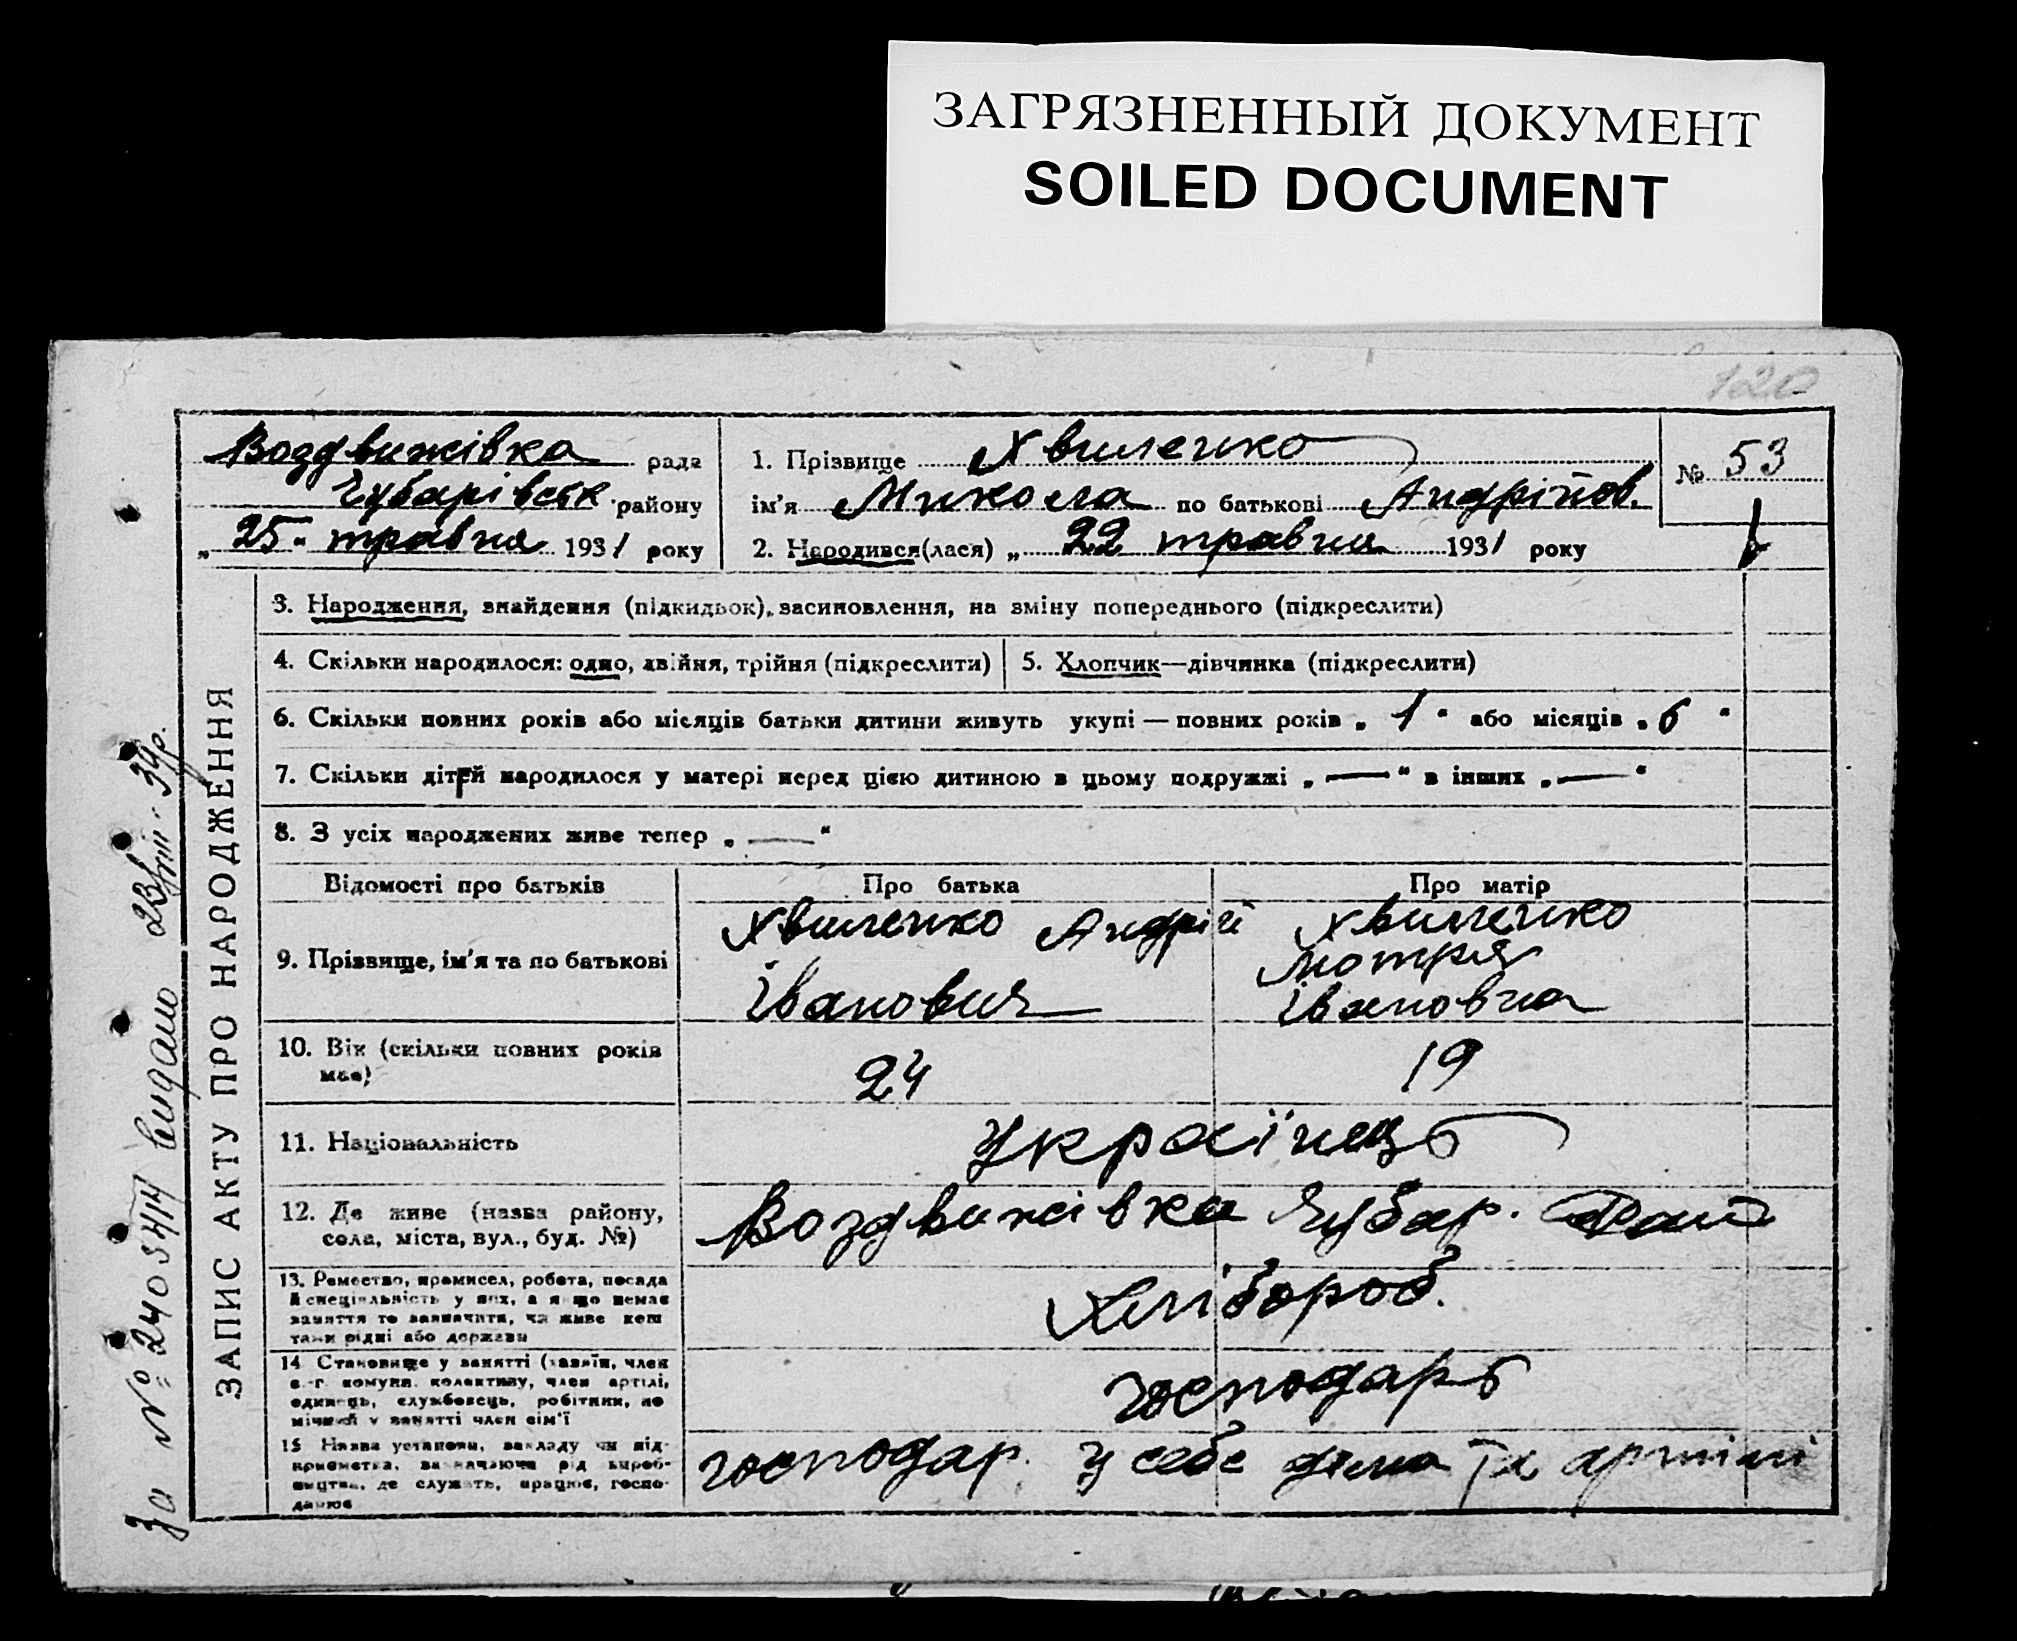 ЗАГРЯЗНЕННЫЙ ДОКУМЕНТ
SOILED DOCUMENT
120
Воздвижівка рада
Чубарівськ. району
„25" травня 1931 року
1. Прізвище Хвиленко
ім'я Микола по батькові Андрійов.
2. Народився(лася) „ 22 травня 1931 року
№ 53
ЗАПИС АКТУ ПРО НАРОДЖЕННЯ
3. Народження, знайдення (підкидьок), засиновлення, на зміну попереднього (підкреслити)
4. Скільки народилося: одно, двійня, трійня (підкреслити)
5. Хлопчик—дівчинка (підкреслити)
6. Скільки повних років або місяців батьки дитини живуть укупі — повних років „ 1 " або місяців „ 6 "
7. Скільки дітей народилося у матері перед цією дитиною в цьому подружжі „ — " в інших „ — "
8. З усіх народжених живе тепер „ — "
Відомості про батьків
Про батька
Про матір
9. Прізвище, ім'я та по батькові
Хвиленко Андрій
Іванович
Хвиленко
Мотря
Івановна
10. Вік (скільки повних років
має)
24
19
11. Національність
Українець
12. Де живе (назва району,
села, міста, вул., буд. №)
Воздвижівка Чубар. Рай
13. Ремество, промисел, робота, посада
й спеціяльність у них, а якщо немає
заняття то зазначити, чи живе кош
тами рідні або держави
Хлібороб.
14. Становище у занятті (хазяїн, член
с.-г. комуни, колективу, член артілі,
одинець, службовець, робітник, по
мічний у занятті член сім'ї
господарь
15. Назва установи, закладу чи під-
приємства, зазначаючи рід вироб-
ництва, де служать, працює, госпо-
дарює
господар. у себе дома та артілі
За № 240544 видано 23/III-34р.